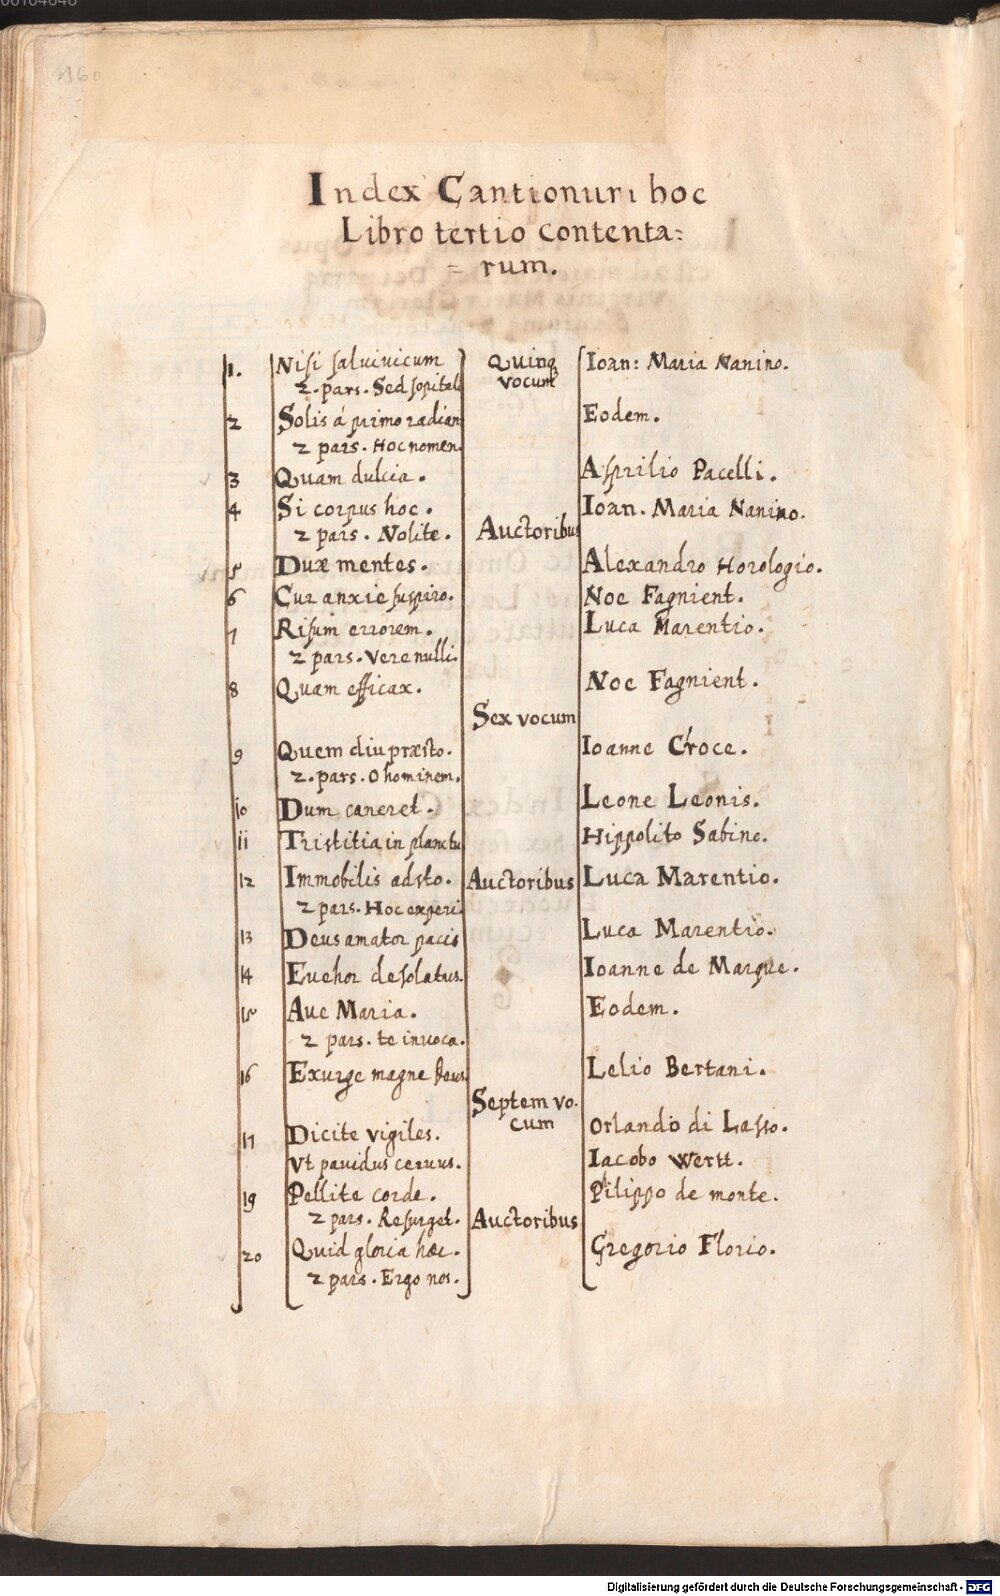 160
Index Cantionum hoc
Libro tertio contenta=
= rum.
1. Nisi salvivicum Quinq vocum Ioan: Maria Nanino.
2. pars. Sed sopitali
2 Solis á primo radian Eodem.
2 pars. Hoc nomen.
3 Quam dulcia. Asprilio Pacelli.
4 Si corpus hoc. Ioan. Maria Nanino.
2 pars. Nolite. Auctoribus
5 Duæ mentes. Alexandro Horologio.
6 Cur anxie suspiro. Noe Fagnient.
7 Risum errorem. Luca Marentio.
2 pars. Vere nulli.
8 Quam efficax. Noe Fagnient.
Sex vocum
9 Quem diu præsto. Ioanne Croce.
2. pars. O hominem.
10 Dum caneret. Leone Leonis.
11 Tristitia in planctu Hippolito Sabino.
12 Immobilis adsto. Auctoribus Luca Marentio.
2 pars. Hoc experi
13 Deus amator pacis Luca Marentio.
14 Euehor desolatus. Ioanne de Marque.
15 Aue Maria. Eodem.
2 pars. te inuoca.
16 Exurge magne Deus. Lelio Bertani.
Septem vo.
cum
17 Dicite vigiles. Orlando di Lasso.
Vt pauidus ceruus. Iacobo Wertt.
19 Pellite corde. Pilippo de monte.
2 pars. Resurget. Auctoribus
20 Quid gloria hæc. Gregorio Florio.
2 pars. Ergo nos.
Digitalisierung gefördert durch die Deutsche Forschungsgemeinschaft - DFG